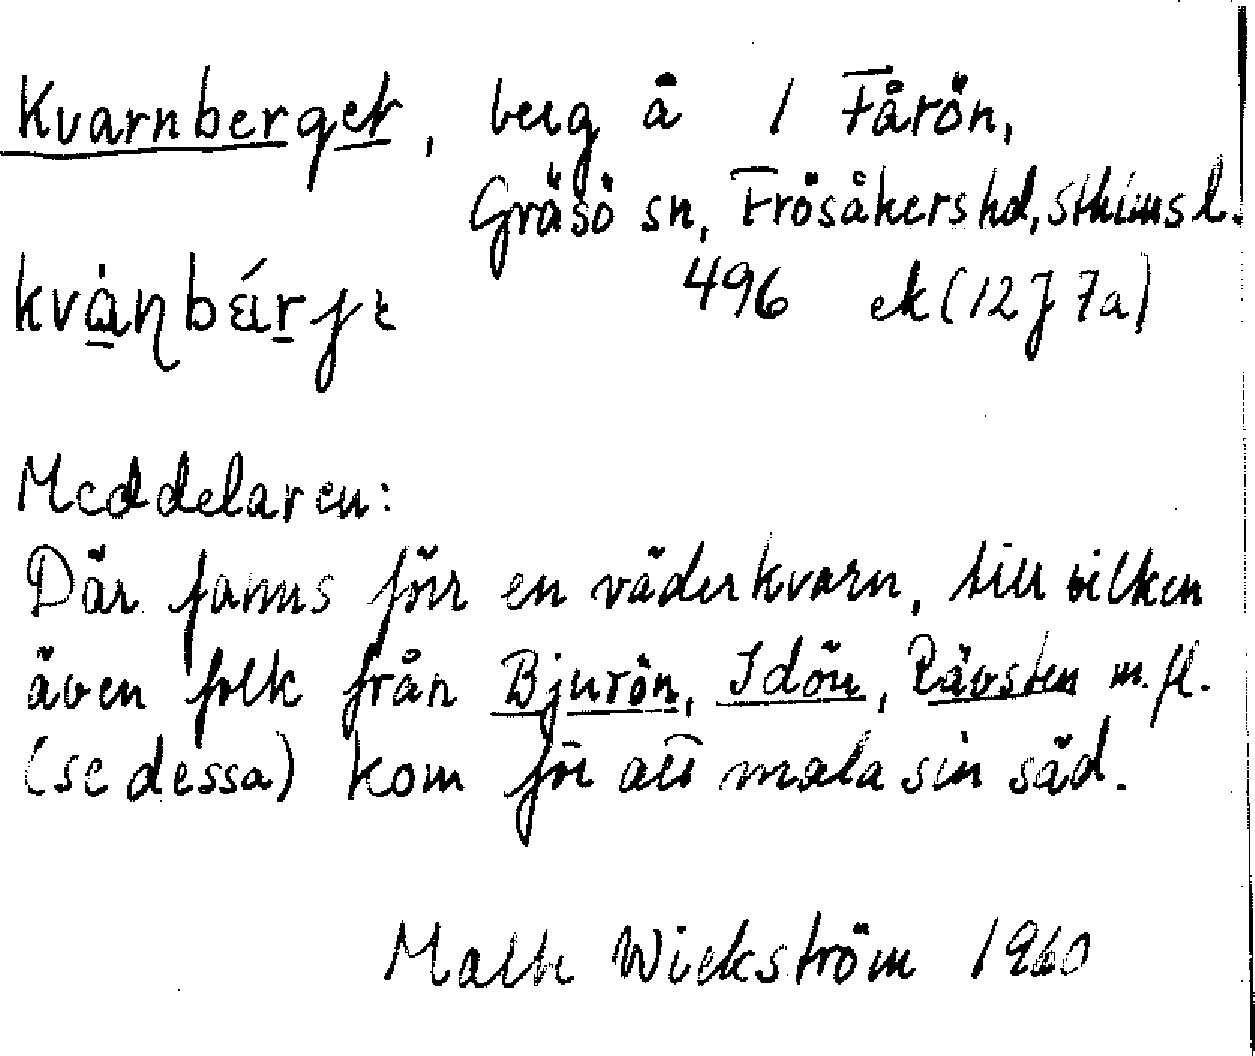 Kvarnberget, berg å 1 Fårön,
Gräsö sn, Frösåkers hd, Sthlms l.
496 ek (12J 7a)
Meddelaren:
Där fanns förr en väderkvarn, till vilken
även folk från Bjurön, Idön, Rävsten m.fl.
(se dessa) kom för att mala sin säd.
Wickström 1960